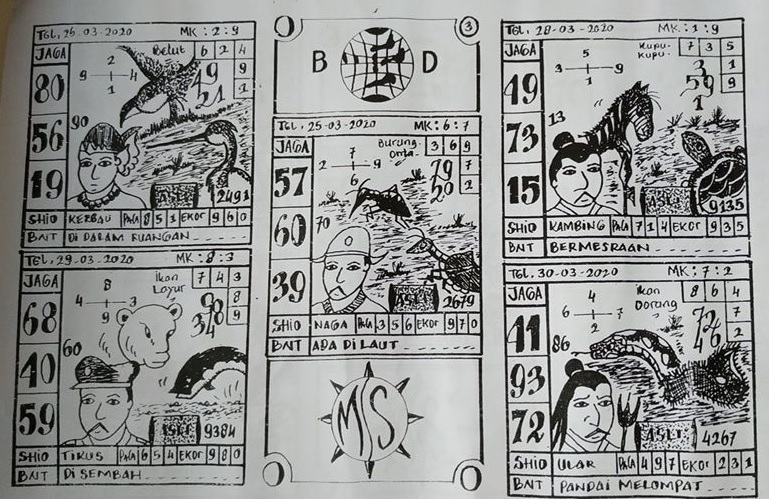 TGL, 26-03-2020 MK : 2 : 9
JAGA
80
56
19
Belut 6 2 4
2
9 4
1
9
1
49
21
90
ASLI 2491
SHIO KERBAU PALA 8 5 1 EKOR 9 6 0
BNT DI DALAM RUANGAN
TGL, 29-03-2020 MK : 8 : 3
JAGA
68
40
59
Ikan Layur 7 4 3
8
4 3
9
8
9
98
34
60
ASLI 9384
SHIO TIKUS PALA 6 5 4 EKOR 9 8 0
BNT DI SEMBAH
3
B D
TGL, 25-03-2020 MK : 6 : 7
JAGA
57
60
39
Burung Onta 3 6 9
7
2 9
6
7
2
79
20
70
ASLI 2679
SHIO NAGA PALA 3 5 6 EKOR 9 7 0
BNT ADA DI LAUT
MS
TGL, 28-03-2020 MK : 1 : 9
JAGA
49
73
15
Kupu-kupu 7 3 5
5
3 9
1
9
9
31
59
1
13
ASLI 9135
SHIO KAMBING PALA 7 1 4 EKOR 9 3 5
BNT BERMESRAAN
TGL, 30-03-2020 MK : 7 : 2
JAGA
41
93
72
Ikan Dorang 8 6 4
4
6 7
2
7
2
72
46
86
ASLI 4267
SHIO ULAR PALA 4 9 7 EKOR 2 3 1
BNT PANDAI MELOMPAT